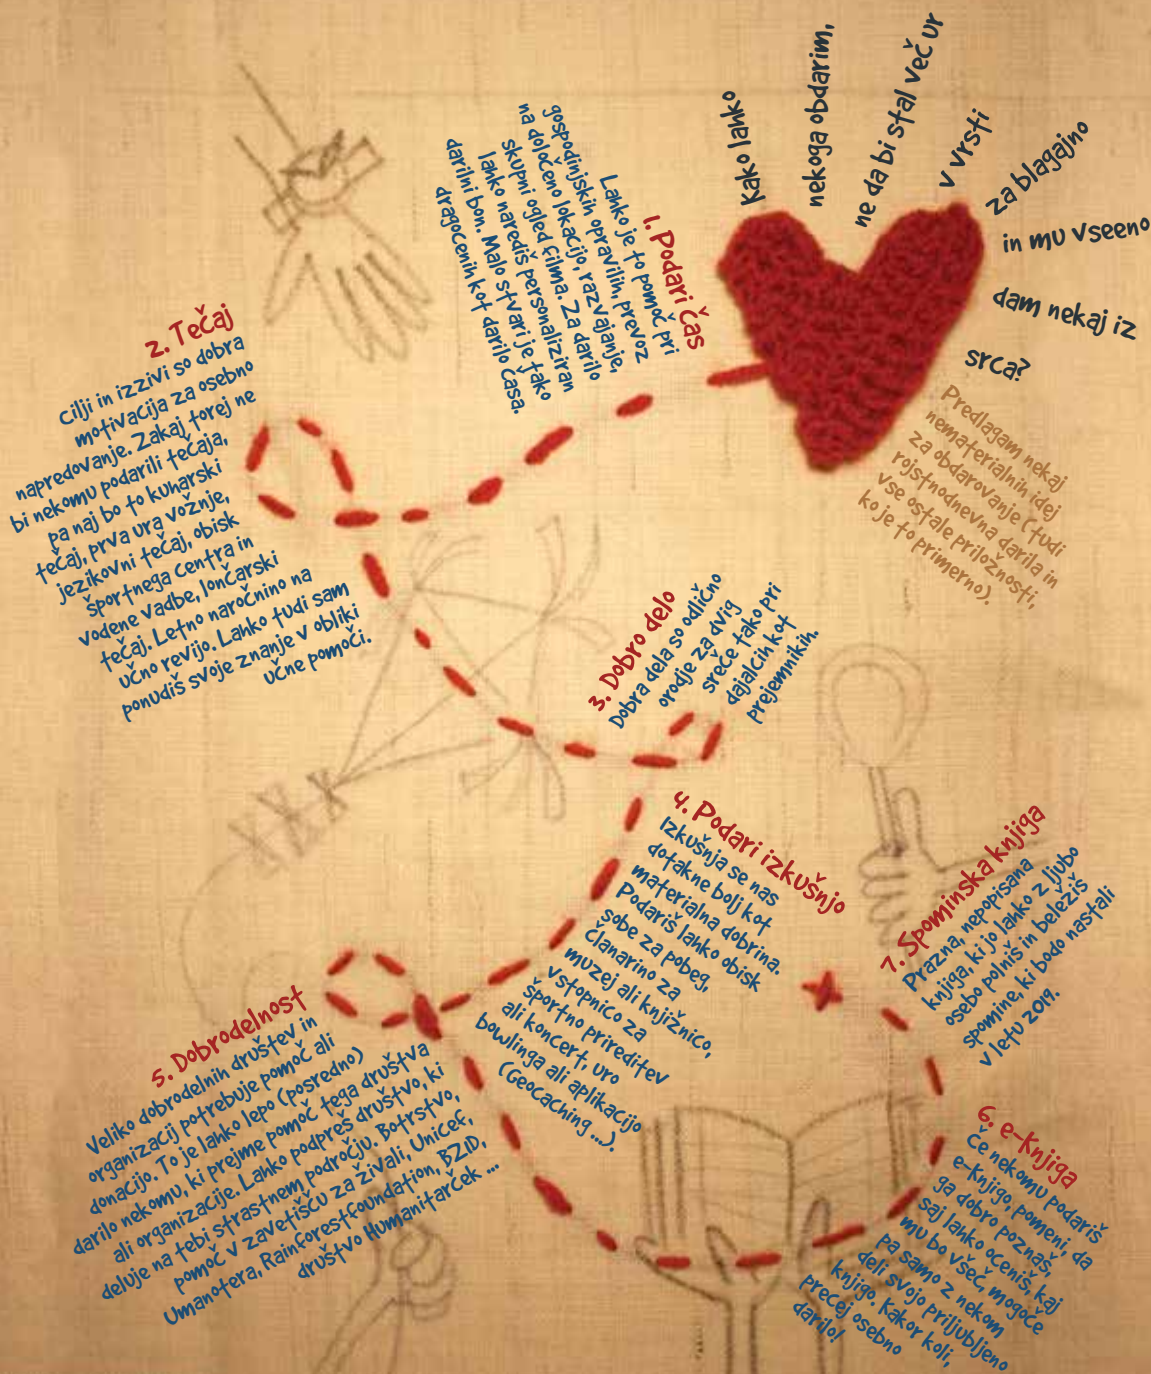 Kako lahko
nekoga obdarim,
ne da bi stal več ur
v vrsti
za blagajno
in mu vseeno
dam nekaj iz
srca?
Predlagam nekaj
nematerialnih idej
za obdarovanje (tudi
rojstnodnevna darila in
vse ostale priložnosti,
ko je to primerno).
1. Podari čas
Lahko je to pomoč pri
gospodinjskih opravilih, prevoz
na določeno lokacijo, razvajanje,
skupni ogled filma. Za darilo
lahko narediš personaliziran
darilni bon. Malo stvari je tako
dragocenih kot darilo časa.
2. Tečaj
Cilji in izzivi so dobra
motivacija za osebno
napredovanje. Zakaj torej ne
bi nekomu podarili tečaja,
pa naj bo to kuharski
tečaj, prva ura vožnje,
jezikovni tečaj, obisk
športnega centra in
vodene vadbe, lončarski
tečaj. Letno naročnino na
učno revijo. Lahko tudi sam
ponudiš svoje znanje v obliki
učne pomoči.
3. Dobro delo
Dobra dela so odlično
orodje za dvig
sreče tako pri
dajalcih kot
prejemnikih.
4. Podari izkušnjo
Izkušnja se nas
dotakne bolj kot
materialna dobrina.
Podariš lahko obisk
sobe za pobeg,
članarino za
muzej ali knjižnico,
vstopnico za
športno prireditev
ali koncert, uro
bowlinga ali aplikacijo
(Geocaching ...).
5. Dobrodelnost
Veliko dobrodelnih društev in
organizacij potrebuje pomoč ali
donacijo. To je lahko lepo (posredno)
darilo nekomu, ki prejme pomoč tega društva
ali organizacije. Lahko podpreš društvo, ki
deluje na tebi strastnem področju. Botrstvo,
pomoč v zavetišču za živali, Unicef,
Umanotera, Rainforestfoundation, BZJD,
društvo Humanitarček ...
6. e-Knjiga
Če nekomu podariš
e-knjigo, pomeni, da
ga dobro poznaš,
saj lahko oceniš, kaj
mu bo všeč, mogoče
pa samo z nekom
deli svojo priljubljeno
knjigo. Kakor koli,
precej osebno
darilo!
7. Spominska knjiga
Prazna, nepopisana
knjiga, ki jo lahko z ljubo
osebo polniš in beležiš
spomine, ki bodo nastali
v letu 2019.